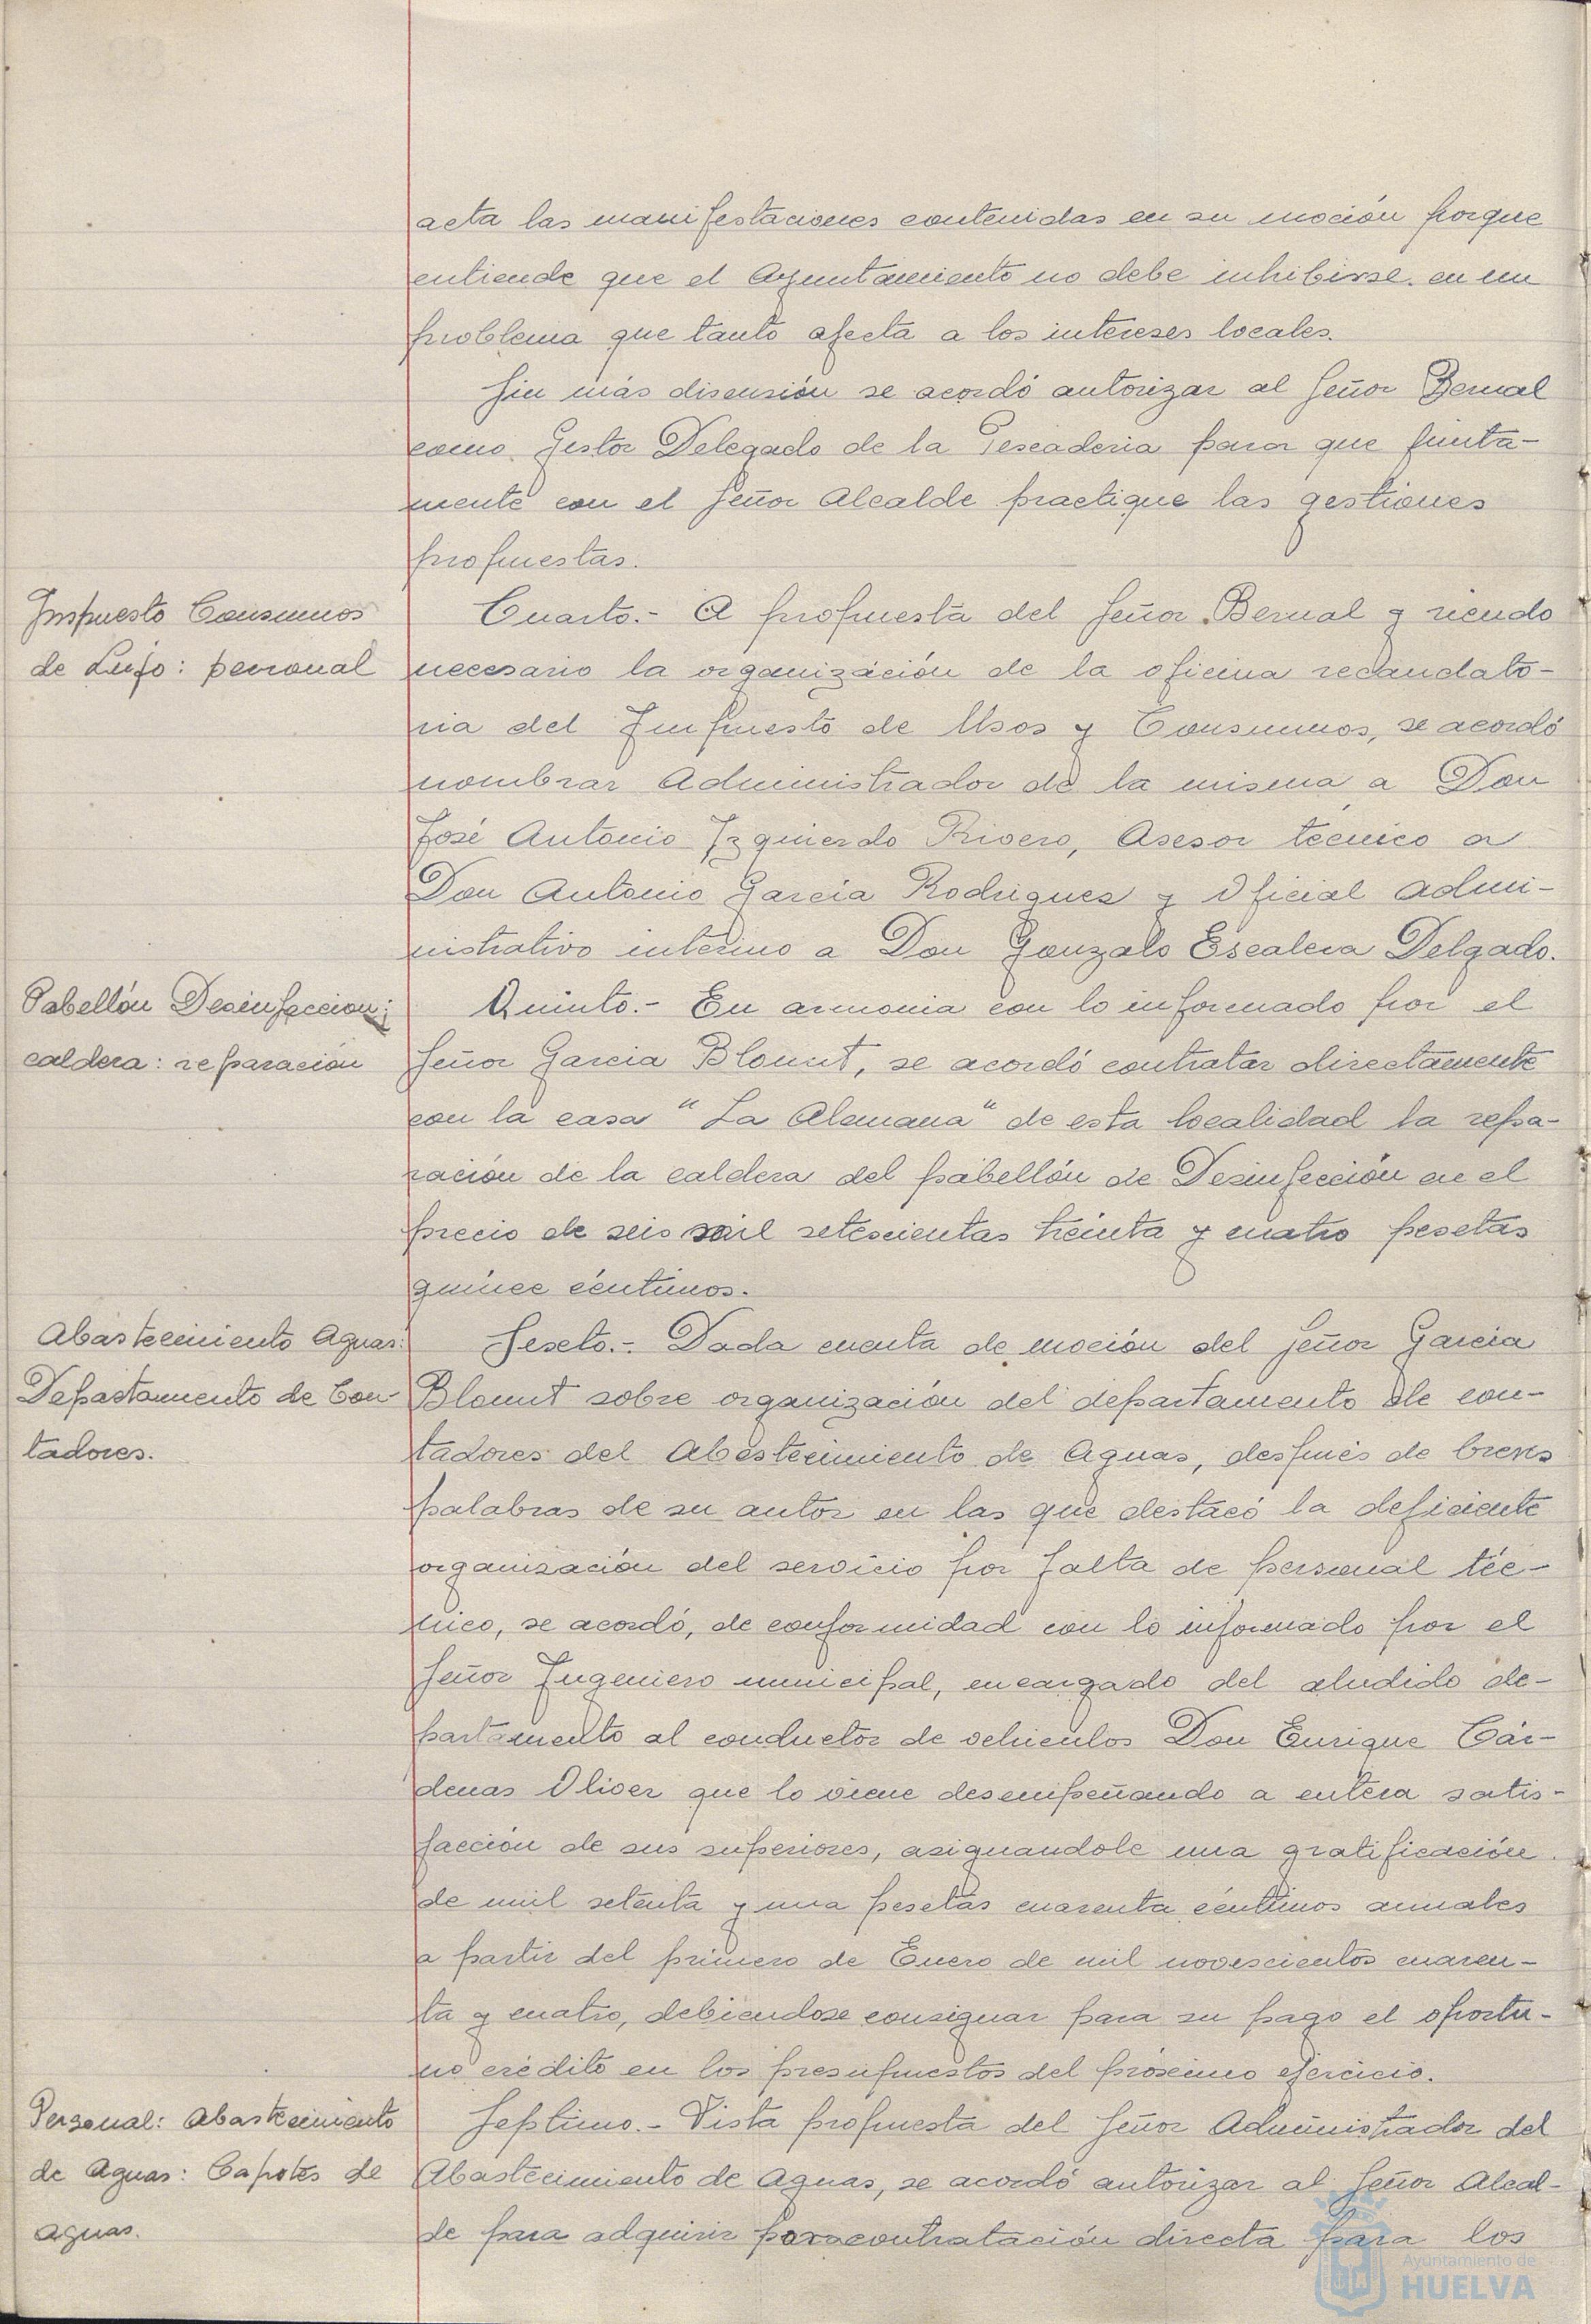 acta las manifestaciones contenidas en su moción porque
entiende que el Ayuntamiento no debe inhibirse en un
problema que tanto afecta a los intereses locales.
Sin más discusión se acordó autorizar al Señor Bernal
como Gestor Delegado de la Pescaderia para que junta-
mente con el Señor Alcalde practique las gestiones
propuestas.
Impuesto Consumos
de Lujo: personal
Cuarto.- A propuesta del Señor Bernal y siendo
necesario la organización de la oficina recaudato-
ria del Impuesto de Usos y Consumos, se acordó
nombrar Administrador de la misma a Don
José Antonio Izquierdo Rivero, Asesor técnico a
Don Antonio Garcia Rodriguez y Oficial admi-
nistrativo interino a Don Gonzalo Escalera Delgado.
Pabellón Desinfeccion;
caldera: reparación
Quinto.- En armonia con lo informado por el
Señor Garcia Blount, se acordó contratar directamente
con la casa "La Alemana" de esta localidad la repa-
ración de la caldera del pabellón de Desinfección en el
precio de seis mil setescientas treinta y cuatro pesetas
quince céntimos.
Abastecimiento Aguas:
Departamento de Con-
tadores.
Sexto.- Dada cuenta de moción del Señor Garcia
Blount sobre organización del departamento de con-
tadores del Abestecimiento de Aguas, después de breves
palabras de su autor en las que destacó la deficiente
organización del servicio por falta de personal téc-
nico, se acordó, de conformidad con lo informado por el
Señor Ingeniero municipal, encargado del aludido de-
partamento al conductor de vehiculos Don Enrique Cár-
denas Oliver que lo viene desempeñando a entera satis-
facción de sus superiores, asignandole una gratificación
de mil setenta y una pesetas cuarenta céntimos anuales
a partir del primero de Enero de mil novescientos cuaren-
ta y cuatro, debiendose consignar para su pago el oportu-
no crédito en los presupuestos del próximo ejercicio.
Personal: Abastecimiento
de Aguas: Capotes de
Aguas.
Septimo.- Vista propuesta del Señor Administrador del
Abastecimiento de Aguas, se acordó autorizar al Señor Alcal-
de para adquirir contratación directa para los
Ayuntamiento de
HUELVA